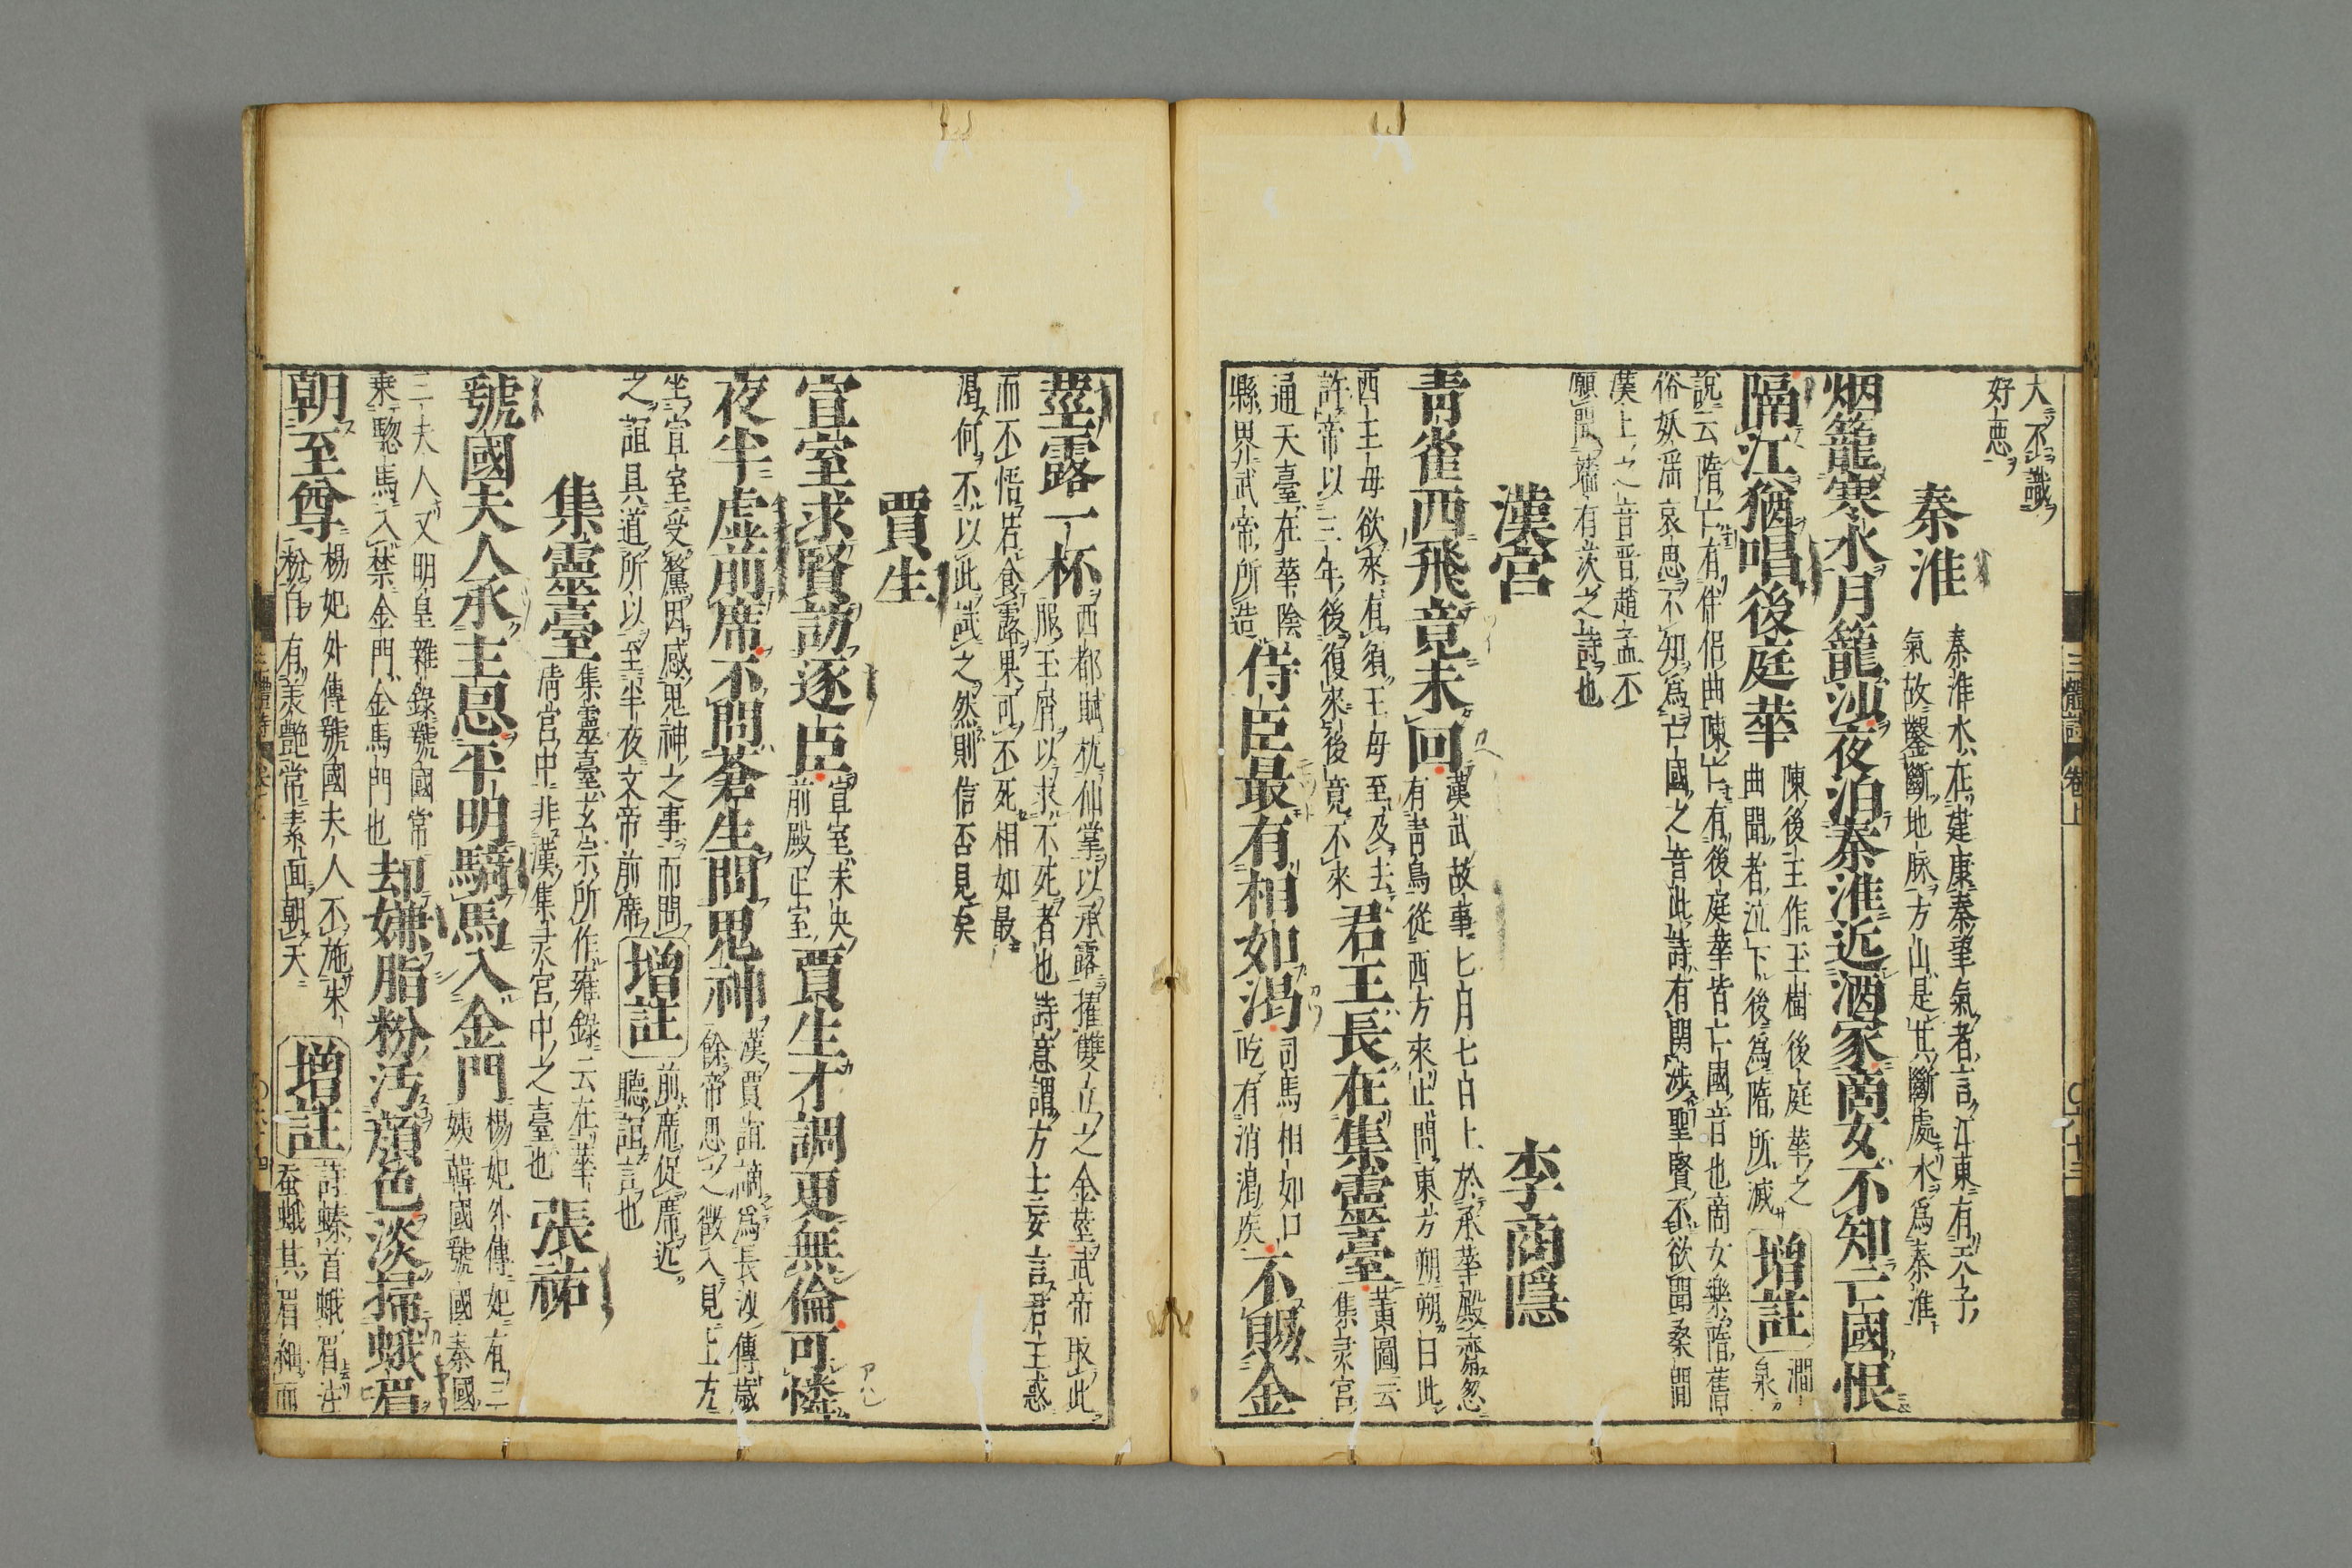 大不識
好惡
秦淮
秦淮水在建康秦望氣者言江東有天子
氣故鑿斷地脉方山是其斷處水爲秦淮
烟籠寒水月籠沙夜泊秦淮近酒家商女不知亡國恨
隔江猶唱後庭華
陳後主作玉樹後庭華之
曲聞者泣下後爲隋所滅
增註
澗
泉
說云隋亡有伴侶曲陳亡有後庭華皆亡國音也商女樂隋舊
俗妖淫哀思不知爲亡國之音此詩有關涉聖賢不欲聞桑間
濮上之音晋趙孟不
願聞牆有茨之詩也
漢宮
李商隱
青雀西飛竟未回
漢武故事七月七日上於承華殿齋忽
有青鳥從西方來止問東方朔朔曰此
西王母欲來有頃王母至及去
許帝以三年後復來後竟不來
君王長在集靈臺
黄圖云
集灵宮
通天臺在華陰
縣界武帝所造
侍臣最有相如渴
司馬相如口
吃有消渴疾
不賜金
三體詩
卷上
莖露一杯
西都賦抗仙掌以承露擢雙立之金莖武帝取此
服玉屑以求不死者也詩意謂方士妄言君王惑
而不悟若食露果可不死相如最
渴何不以此試之然則信否見矣
賈生
宣室求賢訪逐臣
宣室未央
前殿正室
賈生才調更無倫可憐
夜半虛前席不問蒼生問鬼神
漢賈誼謫爲長沙傅歲
餘帝思之徵入見上方
坐宣室受釐因感鬼神之事而問
之誼具道所以至半夜文帝前席
增註
前席促席近
聽誼言也
集靈臺
集靈臺玄宗所作雍錄云在華
清宮中非漢集灵宮中之臺也
張祜
虢國夫人承主恩平明騎馬入金門
楊妃外傳妃有三
姨韓國虢國秦國
三夫人又明皇雜錄虢國常
乘驄馬入禁金門金馬門也
却嫌脂粉汚顏色淡掃蛾眉
朝至尊
楊妃外傳虢國夫人不施朱
粉自有美艷常素面朝天
增註
詩螓首蛾眉注
蚕蛾其眉細而